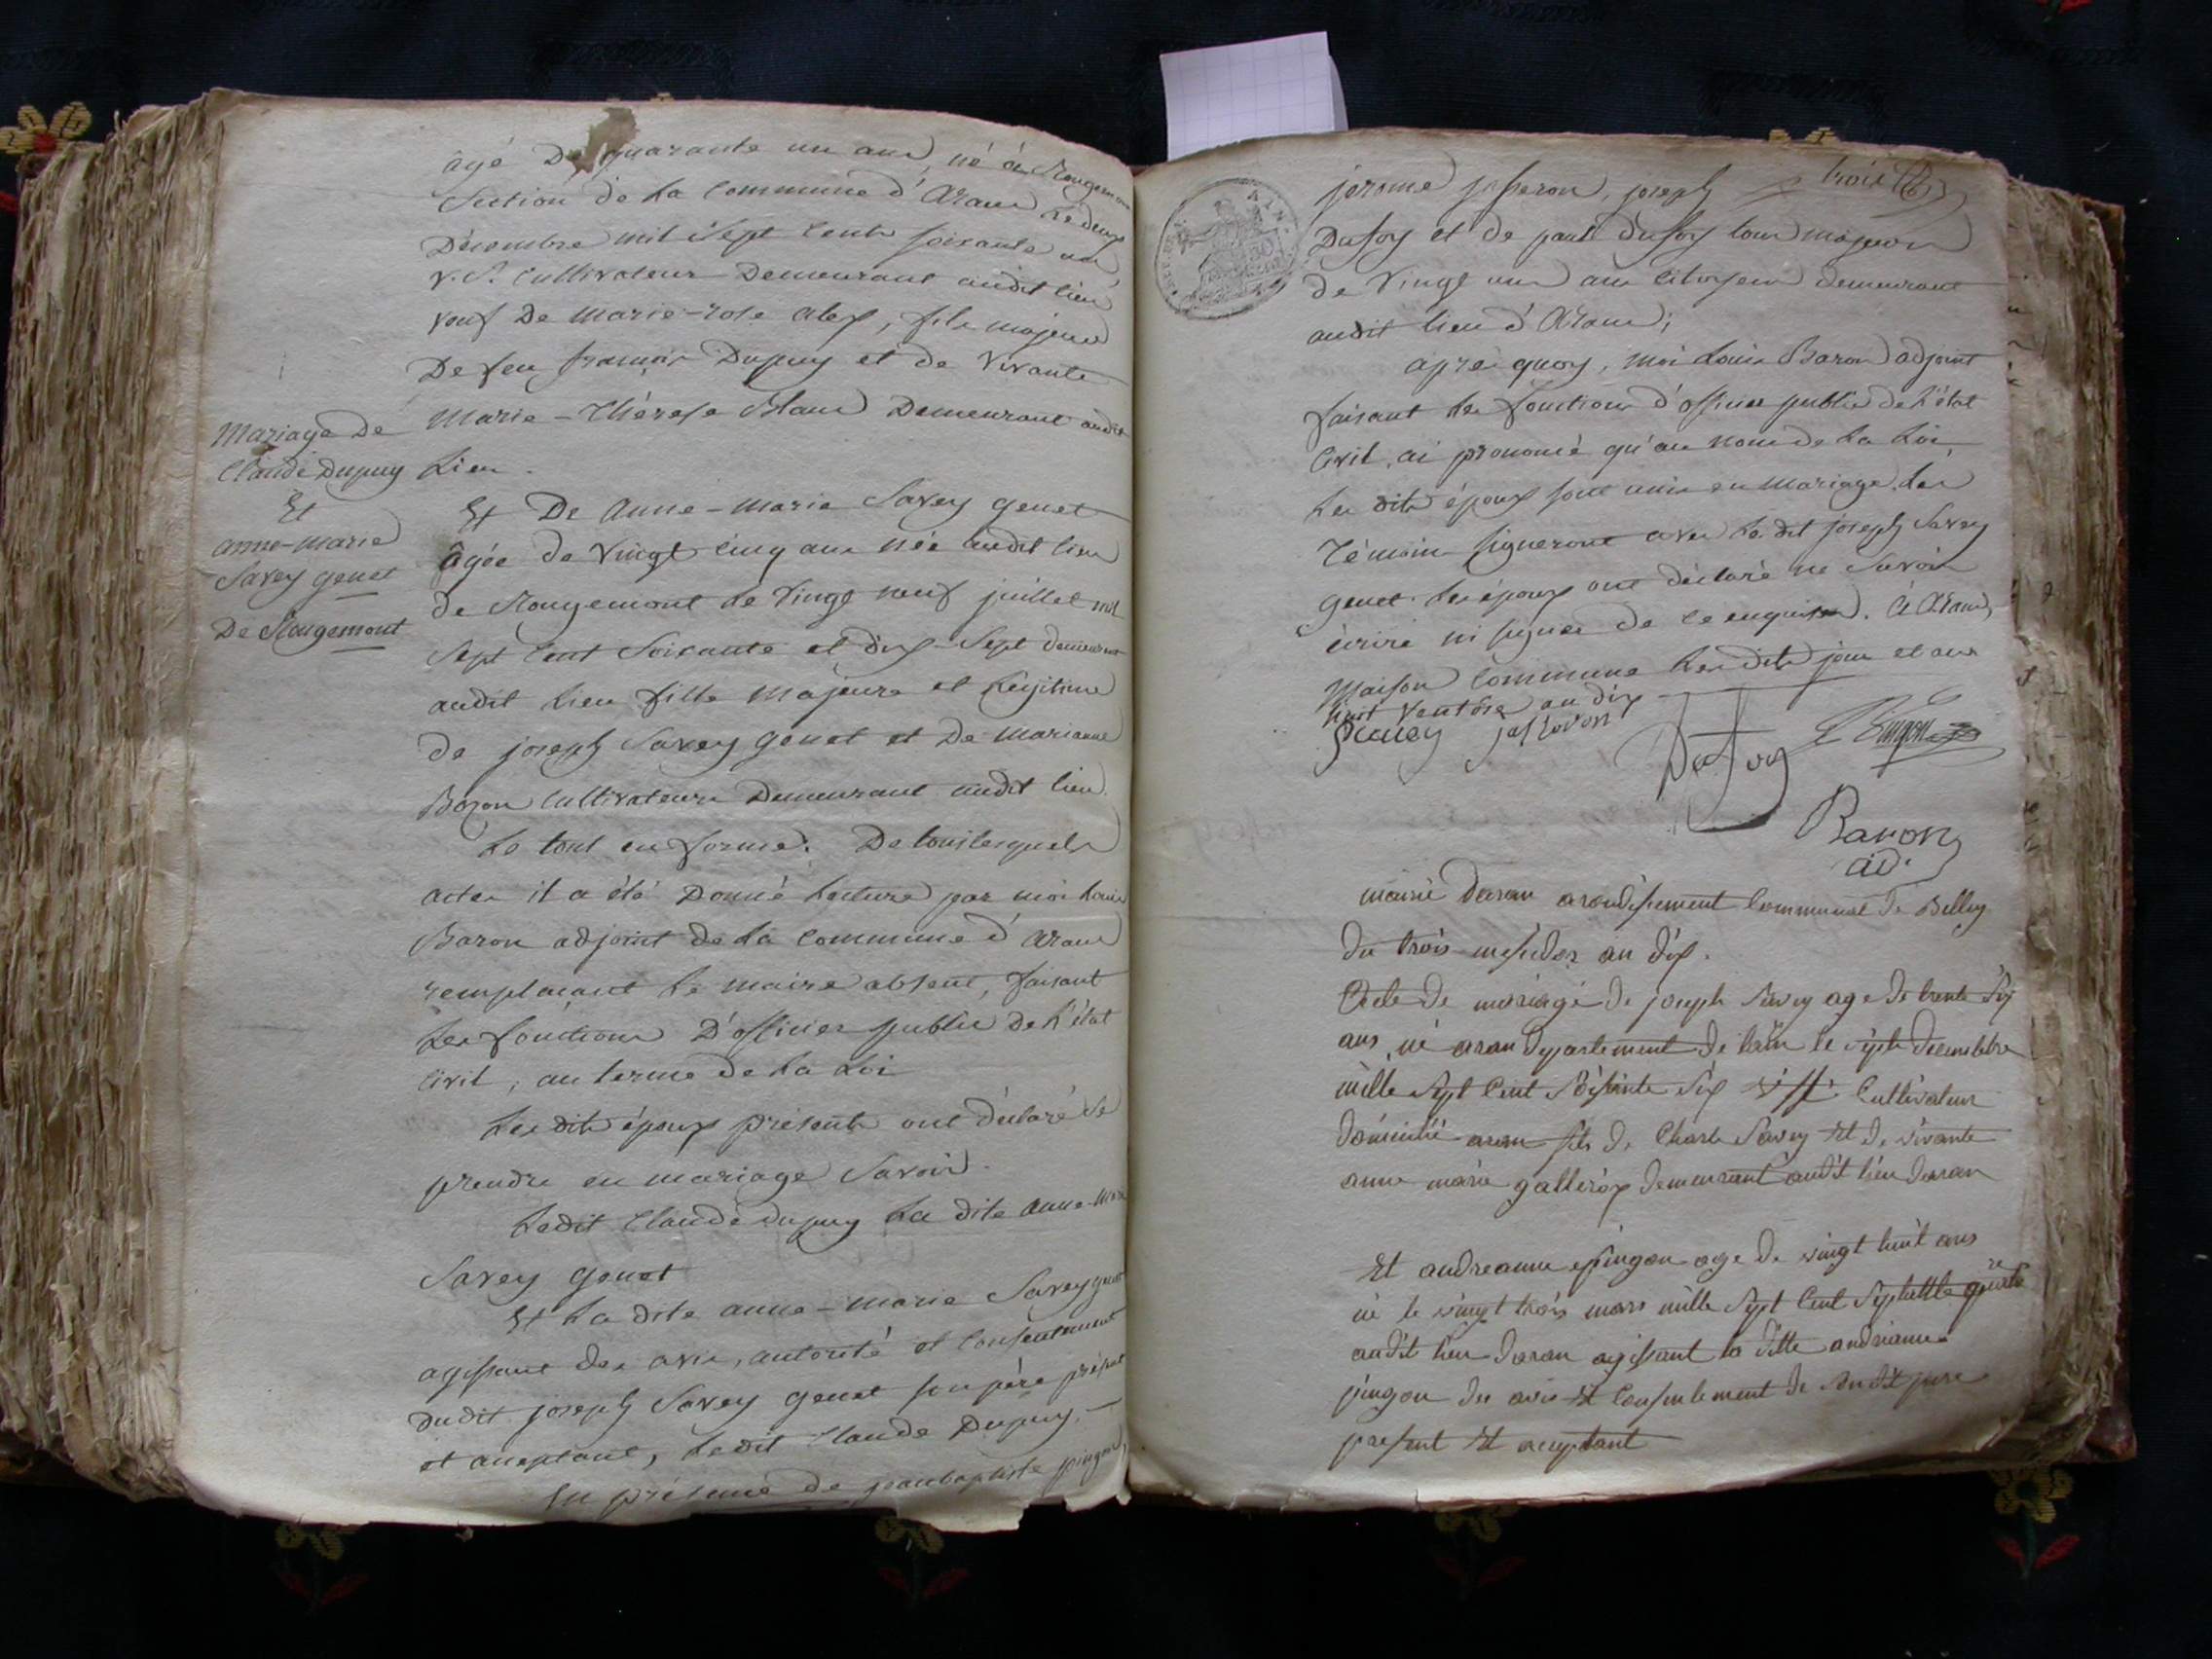 Mariage De
Claude Dupuy
Et
anne-marie
Savey genet
De Rougemont
âgé De quarante un ans, né à Rougemont
Section de La Commune d'Aranc Le deux
Décembre mil Sept Cent soixante un
v. S. Cultivateur Demeurant audit lieu
veuf De Marie-rose alex, fils majeur
De feu françois Dupuy et de Vivante
Marie-Thérese Blanc Demeurant audit
Lieu.
Et De Anne-Marie Savey genet
âgée de Vingt cinq ans née audit lieu
de Rougemont Le Vingt neuf juillet mil
Sept Cent Soixante et dix-Sept demeurant
audit Lieu fille Majeure et Légitime
de joseph Savey Genet et De Marianne
Bozon Cultivateurs Demeurant audit lieu.
Le tout en forme. De tous lesquels
actes il a été Donné Lecture par moi Louis
Baron adjoint de La Commune d'Aranc
remplaçant Le Maire absent, faisant
Les fonctions D'officier public De L'état
Civil, au terme de La Loi
Les dits époux présents ont déclaré Se
prendre en mariage Savoir.
Ledit Claude Dupuy La dite Anne-Marie
Savey genet
Et La dite anne-marie Savey genet
agissant des avis, autorité et Consentement
dudit joseph Savey genet son père présent
et aceptant, Ledit Claude Dupuy.
En présence de jeanbaptiste pingon,
trois
jerome josseron, joseph
Dufoy et de paul Dufoy tous majeurs
de Vingt un ans Citoyens demeurant
audit lieu d'Aranc;
après quoy, moi Louis Baron adjoint
faisant Les fonctions d'officier public de L'état
Civil, ai prononcé qu'au nom de La Loi,
Les dits époux sont unis en mariage. Les
Témoins Signeront avec Le dit joseph Savey
Genet. Les époux ont déclaré ne Savoir
écrire ni signer de ce enquis. à Aranc,
Maison Commune Lesdits jour et an
huit Ventose an dix
Savey josseron
Dufoy
Pingon
Baron
ad.
mairie daran arondissement Communal de Belley
du trois mesidor an dix.
Acte de mariage de joseph Savey age de trente six
ans, né aran departement de lain le sept decembre
mille Sept Cent Soisante Six Cultivateur
domicilié aran fils de Charle Savey Et de vivante
anne marie galleriox demeurant audit lieu daran
Et andreanne pingon age de vingt huit ans
né le vingt trois mars mille Sept Cent Septente quatre
audit lieu daran agissant la ditte andrianne
pingon des avis Et Consentement de Sondit pere
present Et aceptant